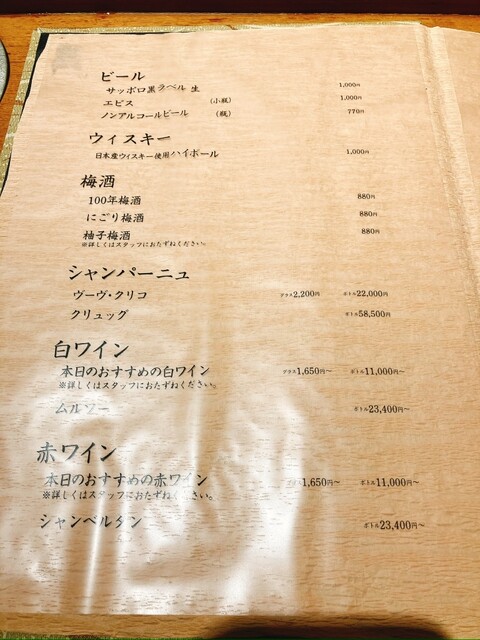 ビール
サッポロ黒ラベル 生 1,000円
エビス (小瓶) 1,000円
ノンアルコールビール (瓶) 770円
ウィスキー
日本産ウィスキー使用ハイボール 1,000円
梅酒
100年梅酒 880円
にごり梅酒 880円
柚子梅酒 880円
※詳しくはスタッフにおたずねください。
シャンパーニュ
ヴーヴ・クリコ グラス2,200円 ボトル22,000円
クリュッグ ボトル58,500円
白ワイン
本日のおすすめの白ワイン グラス1,650円～ ボトル11,000円～
※詳しくはスタッフにおたずねください。
ムルソー ボトル23,400円～
赤ワイン
本日のおすすめの赤ワイン グラス1,650円～ ボトル11,000円～
※詳しくはスタッフにおたずねください。
シャンベルタン ボトル23,400円～